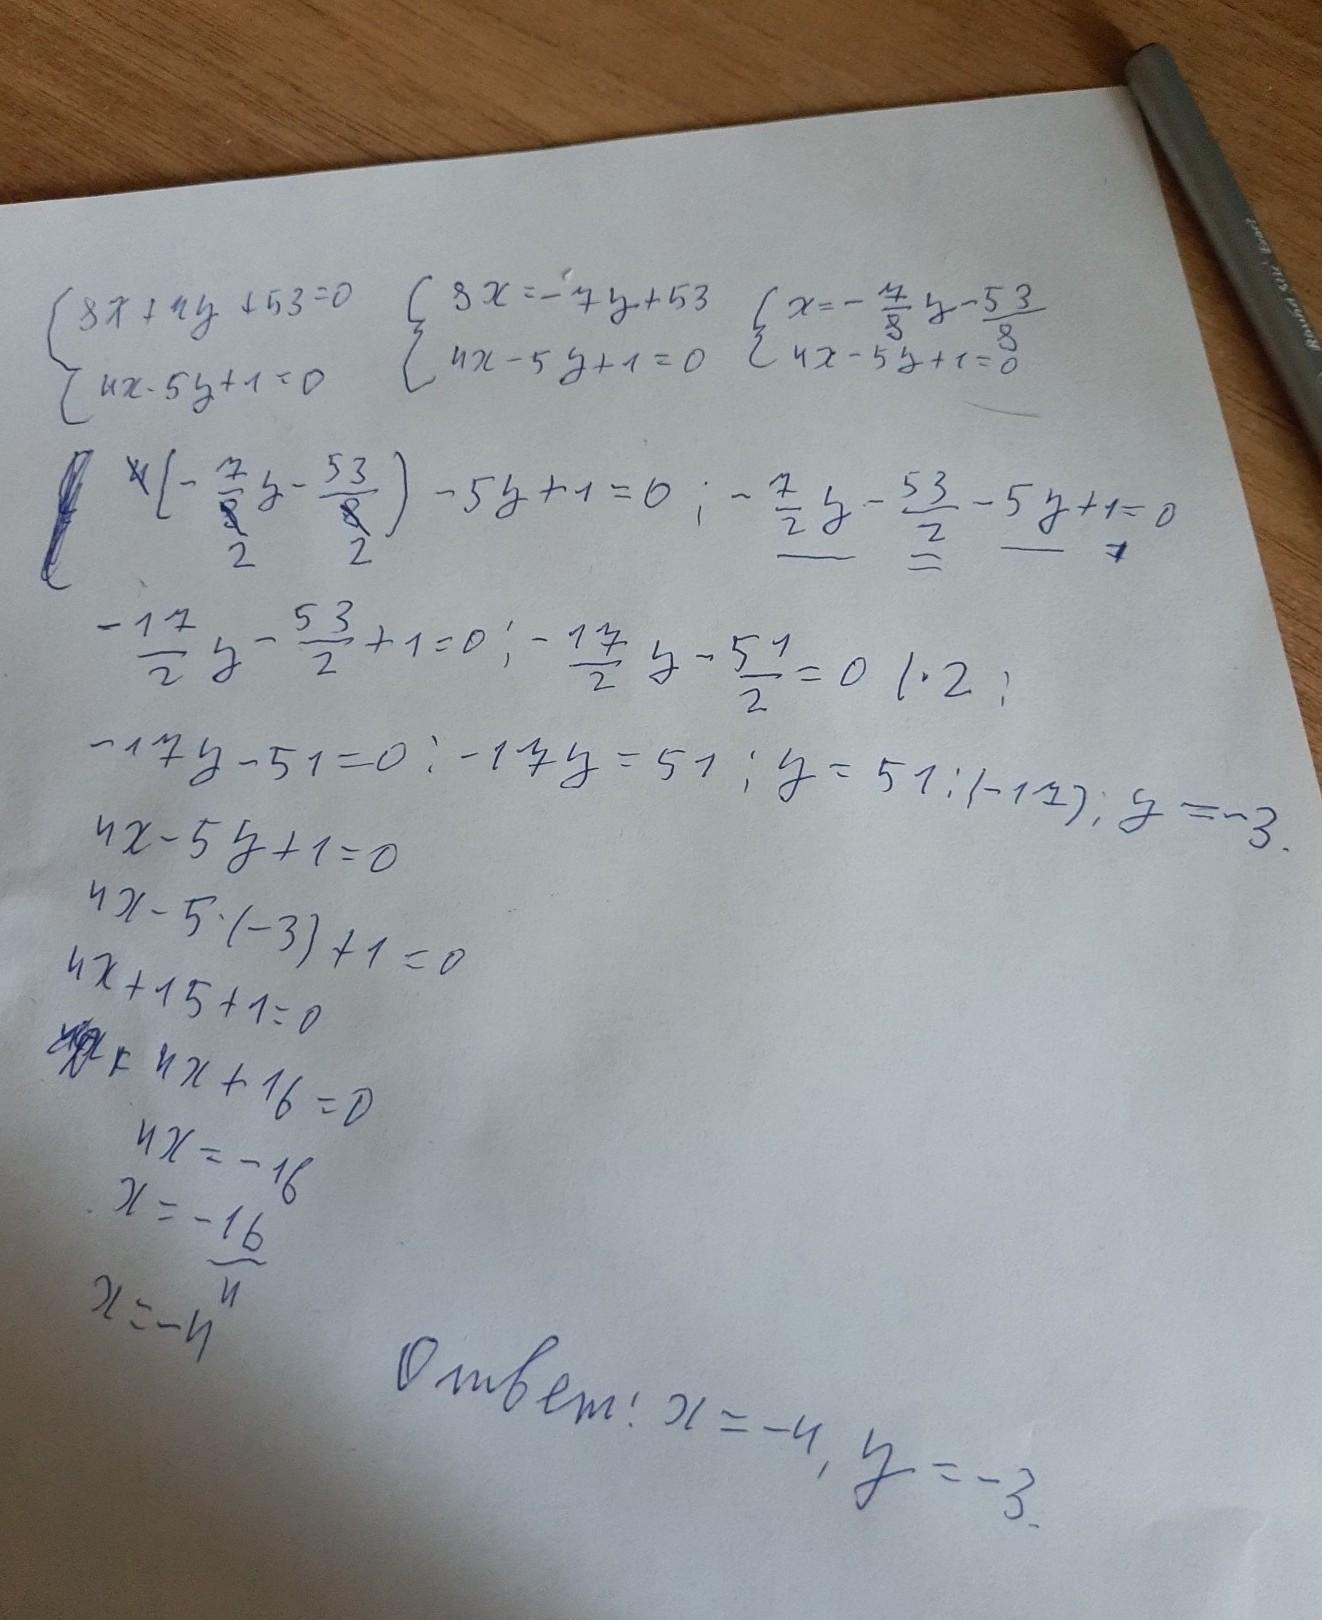 {8x+7y+53=0 {8x=-7y+53 {x=-7/8y-53/8
{4x-5y+1=0 {4x-5y+1=0 {4x-5y+1=0
4(-7/8y-53/8)-5y+1=0; -7/2y-53/2-5y+1=0
2 2
-17/2y-53/2+1=0; -17/2y-51/2=0 |·2;
-17y-51=0; -17y=51; y=51:(-17); y=-3.
4x-5y+1=0
4x-5·(-3)+1=0
4x+15+1=0
4x+16=0
4x=-16
x=-16/4
x=-4
Ответ: x=-4, y=-3.